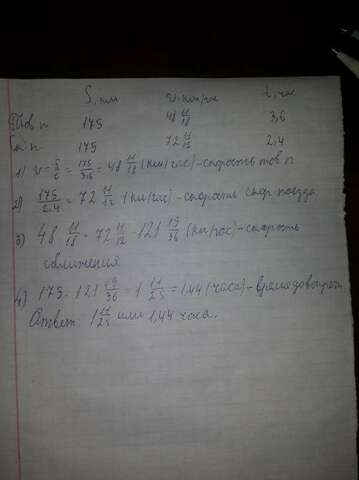 S, км v, км/час t, час
Тов. п 175 48 11/18 3,6
Ск. п 175 72 11/12 2,4
1) v = S/t = 175/3,6 = 48 11/18 (км/час) - скорость тов. п
2) 175/2,4 = 72 11/12 (км/час) - скорость скор. поезда
3) 48 11/18 + 72 11/12 = 121 19/36 (км/час) - скорость
сближения
4) 175 : 121 19/36 = 1 11/25 = 1,44 (часа) - время до встречи
Ответ: 1 11/25 или 1,44 часа.